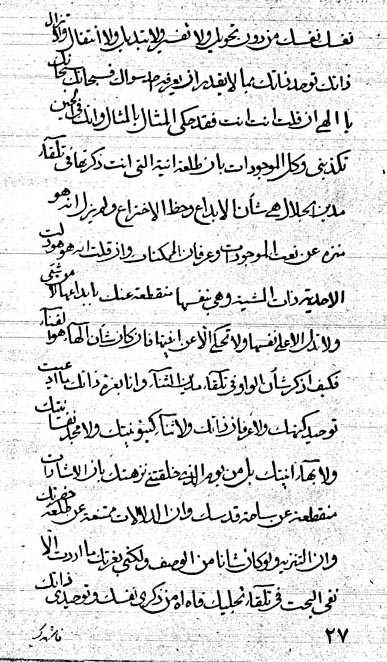 نفسك نفسك من دون تحويل ولا تغيير ولا تبديل ولا انتقال ولا تزال
ذاتك توحد ذاتك بما لا يقدر ان يعرفه احد سواك فسبحانك سبحانك
يا الهى ان قلت انت انت فقد حكى المثال بالمثال وانك فى الحين
تكذبنى وكل الموجودات بان طلعة انية التى انت ذكرتها فى تلقاء
مدين الجلال هى شأن الابداع وحظ الاختراع ولم يزل انه هو
منزه عن نعت الموجودات وعرفان الممكنات وان قلت انه هو هو دلت
الاحدية ذات المشية وهى نفسها منقطعة عنك بابداعها لا من شئ
ولا تدل الا على نفسها ولا تحكى الا عن انيتها فان كان شأن الهاء هو لقاء
فكيف اذكر شأن الواو فى تلقاء مدين الثناء وانا بعزة ذاتك ما اردت
توحيد كنهك ولا عرفان ذاتك ولا ثناء كينونيتك ولا مجد نفسانيتك
ولا بهاء انيتك بل من يوم الذى خلقتنى نزهتك بان الاشارات
منقطعة عن ساحة قدسك وان الدلالات ممتنعة عن طلعة حضرتك
وان التنزيه ولو كان شأنا من الوصف ولكنى بعزتك ما اردت الا
نفى البحت فى تلقاء تجليك فاه اه من ذكرى نفسك وتوحيدى ذاتك
٢٧